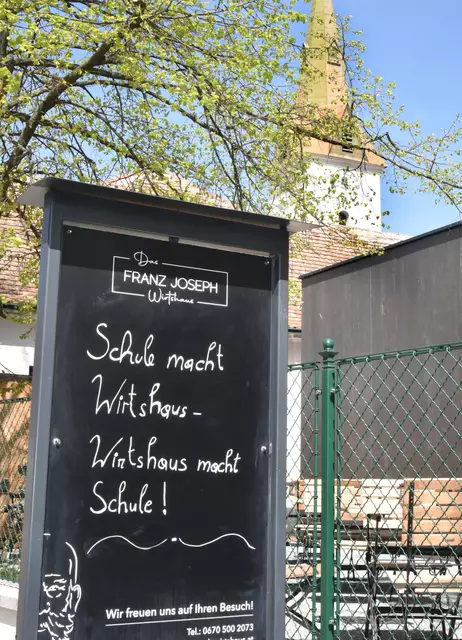 Das
FRANZ JOSEPH
Wirtshaus
Schule macht
Wirtshaus –
Wirtshaus macht
Schule!
Wir freuen uns auf Ihren Besuch!
Tel.: 0670 500 2073